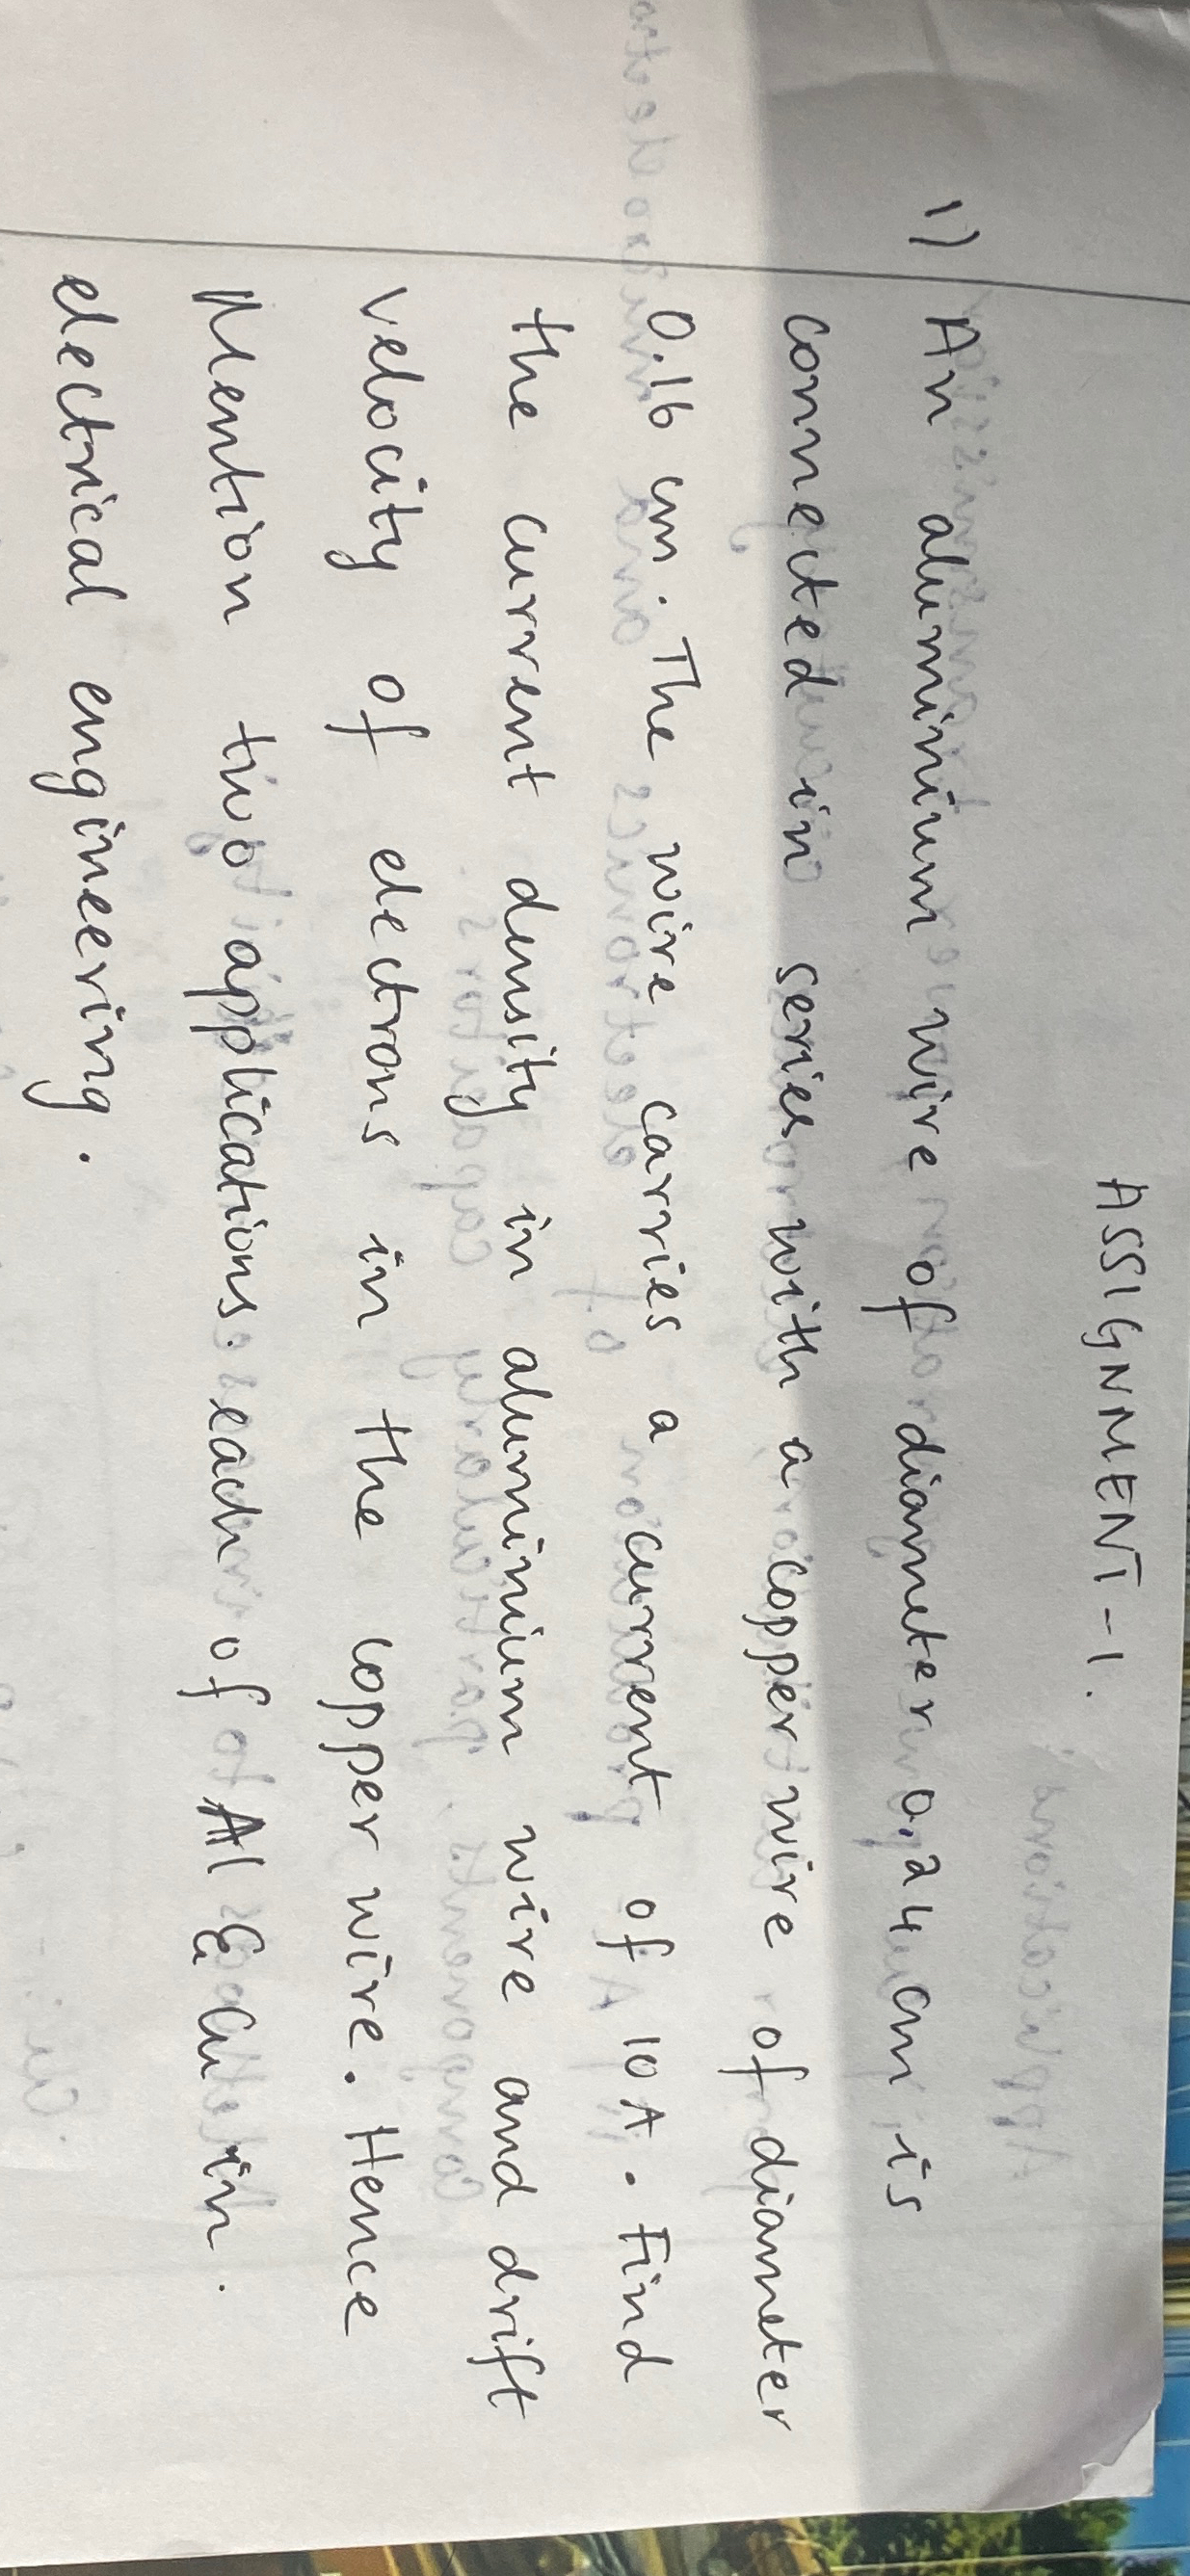 ASSIGNMENT-1.
1) An aluminium wire of diameter 0.24 cm is
connected in series with a copper wire of diameter
0.16 cm. The wire carries a current of 10A. Find
the current density in aluminium wire and drift
velocity of electrons in the copper wire. Hence
Mention two applications. each of Al & Cu in.
electrical engineering.